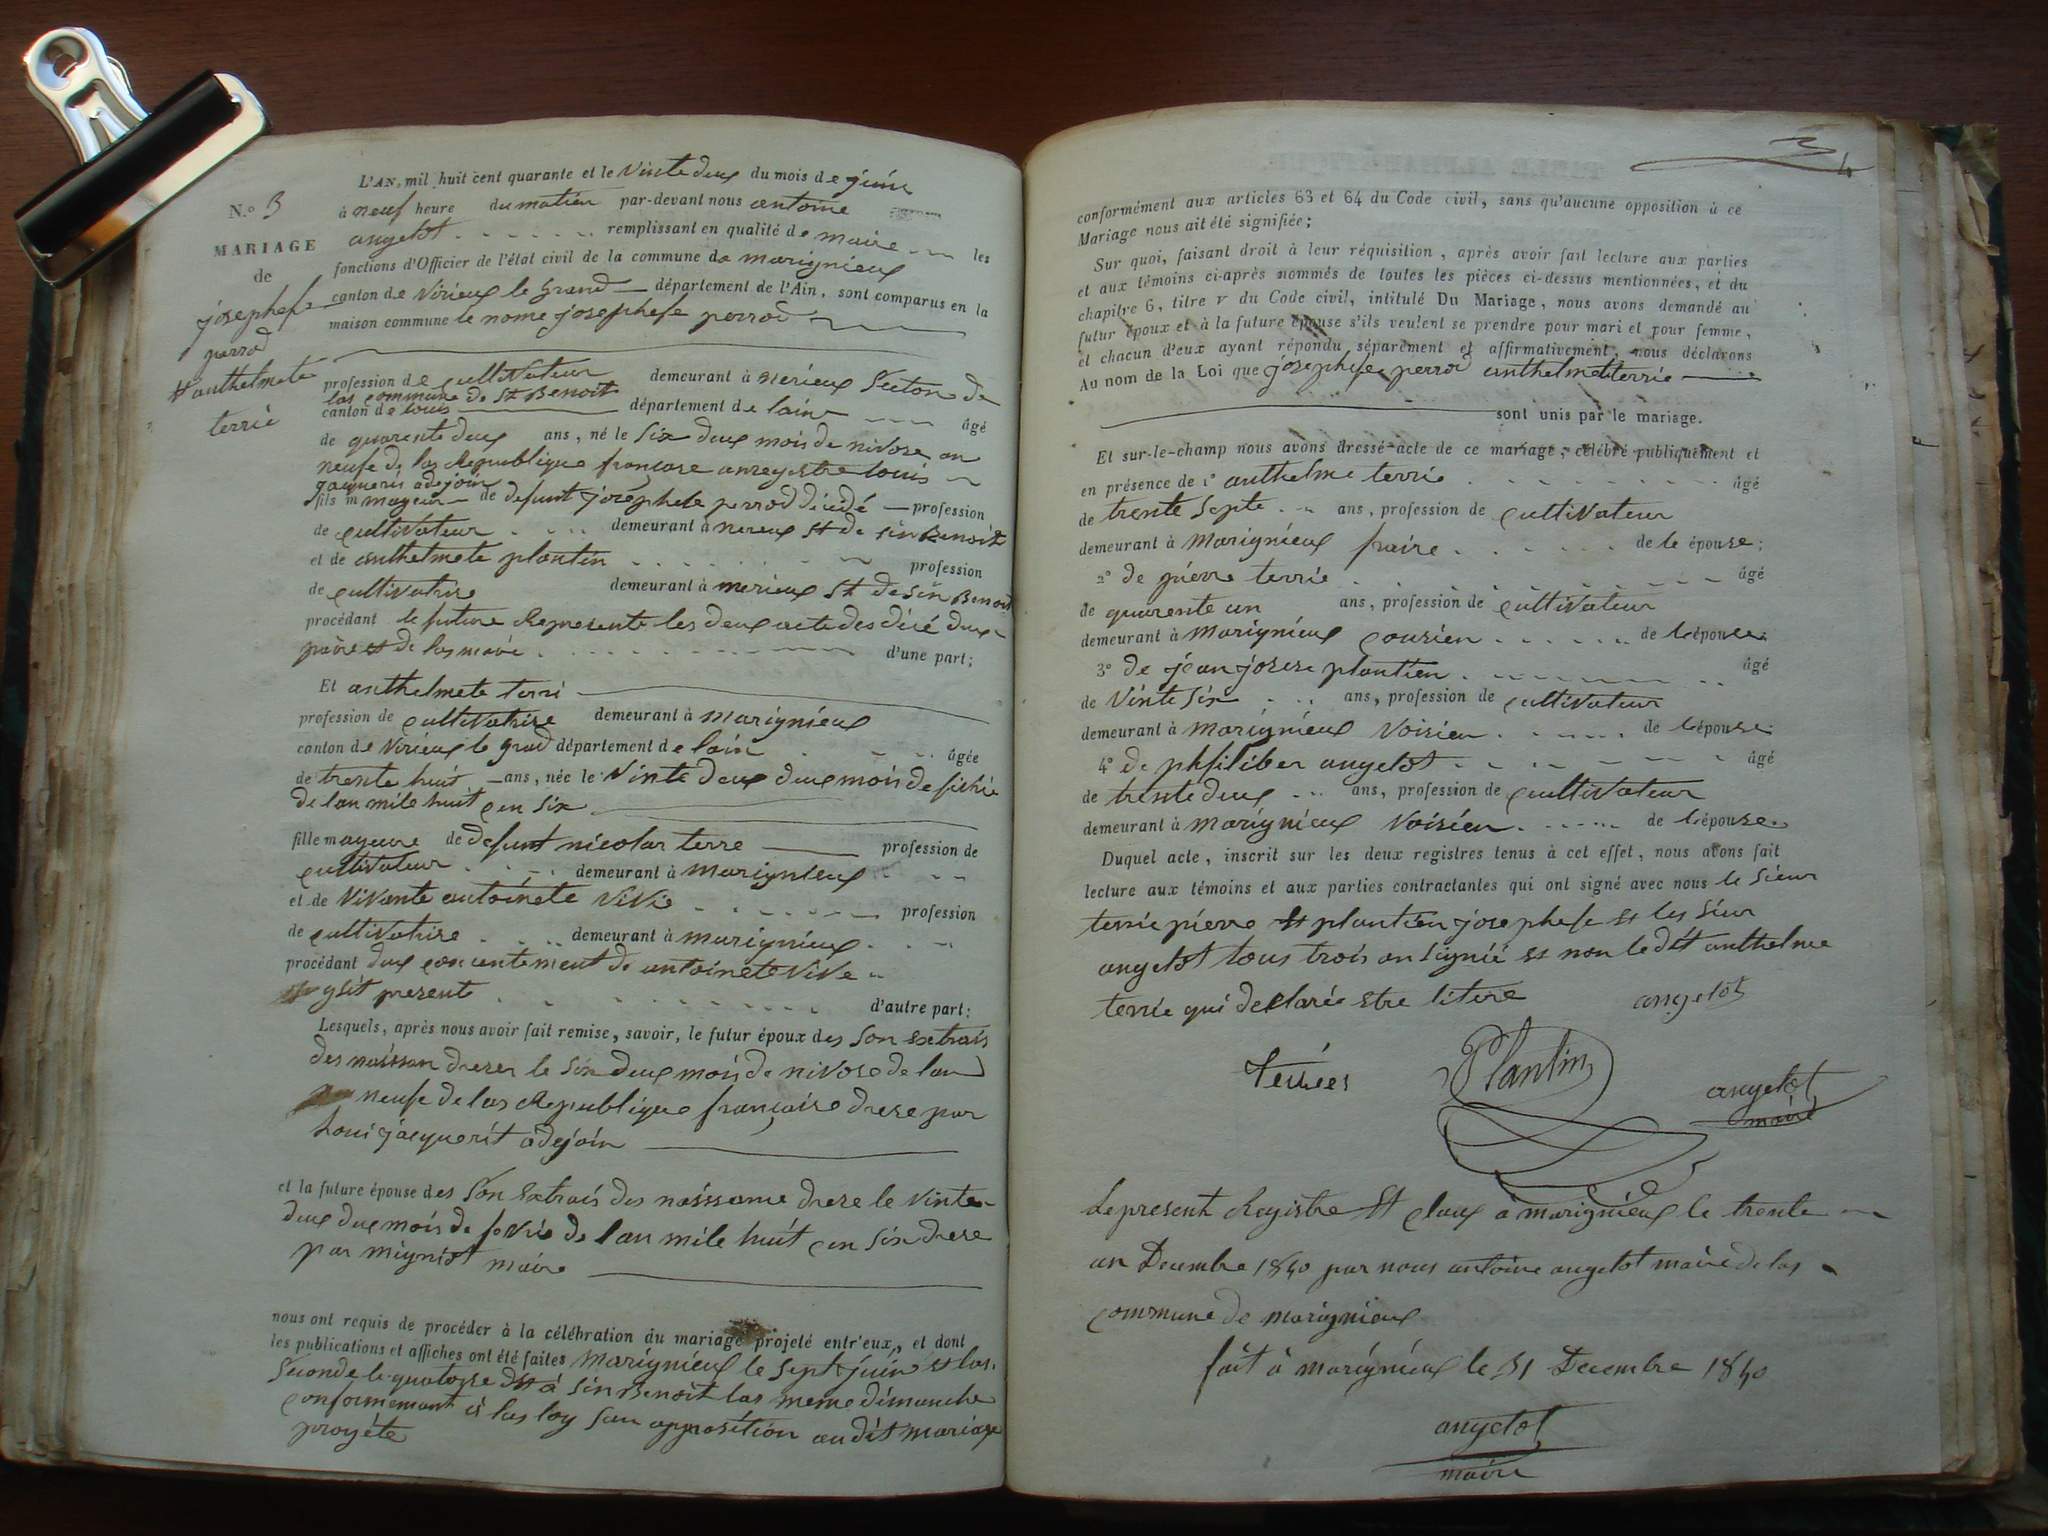 L'AN, mil huit cent quarante et le vinte deux du mois de juin
N.º 3
à neuf heure du matien par-devant nous antoine
angelot remplissant en qualité de maire les
MARIAGE
de
josephefe
perrod
et anthelmete
terrié
fonctions d'Officier de l'état civil de la commune de marignieux
canton de virieux le grand département de l'Ain, sont comparus en la
maison commune le nome josephefe perrod
profession de cultivateur demeurant à merieux secton de
las commune de St Benoit
canton de louis département de lain âgé
de quarente deux ans, né le six deux mois de nivose an
neufe de las Republique françase anregistre louis
jaqueris adejoin
fils m mayeur de defunt josephefe perrod décédé profession
de cultivateur demeurant à nereux st de sin Benoit
et de anthelmete plantin profession
de cultivatrise demeurant à merieux st de sin Benoit
procédant le future Represente les deux acte des décé dux
père et de las mère d'une part;
Et anthelmete terri
profession de cultivatrise demeurant à marignieux
canton de virieux le grad département de lain âgée
de trente huit ans, née le vinte deux deux mois de fevrié
de lan mile huit cen six
fille mayeure de defunt nicolas terre profession de
cultivateur demeurant à marignieux
et de vivante antoinete vivie profession
de cultivatrise demeurant à marignieux
procédant dux concentement de antoinete vive
ysit present d'autre part;
Lesquels, après nous avoir fait remise, savoir, le futur époux des son extrais
des naissan dreser le six deux mois de nivose de lan
neufe de las Republique françaire drese par
Loui jacquerit adejoin
et la future épouse des son extrais des naissance drese le vinte
deux dux mois de fevrié de lan mile huit cen six drese
par migniot maire
nous ont requis de procéder à la célébration du mariage projeté entr'eux, et dont
les publications et affiches ont été faites marignieux le sept juin et las
seconde le quatorse dt à sin Benoit las meme dimanche
conformemant à las loy san opposition audit mariage
proyéte
conformément aux articles 63 et 64 du Code civil, sans qu'aucune opposition à ce
Mariage nous ait été signifiée;
Sur quoi, faisant droit à leur réquisition, après avoir fait lecture aux parties
et aux témoins ci-après nommés de toutes les pièces ci-dessus mentionnées, et du
chapitre 6, titre v du Code civil, intitulé Du Mariage, nous avons demandé au
futur époux et à la future épouse s'ils veulent se prendre pour mari et pour femme,
et chacun d'eux ayant répondu séparément et affirmativement, nous déclarons
Au nom de la Loi que josephefe perrod anthelmete terrie
sont unis par le mariage.
Et sur-le-champ nous avons dressé acte de ce mariage, célébré publiquement et
en présence de 1º anthelme terrie âgé
de trente septe ans, profession de cultivateur
demeurant à marignieux fraire de le épouse;
2º de pierre terrie âgé
de quarente un ans, profession de cultivateur
demeurant à marignieux cousien de l'épouse
3º de jean josese plantien âgé
de vinte six ans, profession de cultivateur
demeurant à marignieux voisien de l'épouse
4º de phfiliber angelot âgé
de trente deux ans, profession de cultivateur
demeurant à marignieux voisien de l'épouse
Duquel acte, inscrit sur les deux registres tenus à cet effet, nous avons fait
lecture aux témoins et aux parties contractantes qui ont signé avec nous le sieur
terrie pierre et plantien josephefe et les sieur
angelot tous trois on signié et non le dit anthelme
terrie qui declarée etre litere angelot
Terrier Plantin angelot
maire
Le present Registre Et cloux à marignieux le trente
un Decembre 1840 par nous antoine angelot maire de las
commune de marignieux
fait à marignieux le 31 Decembre 1840
angelot
maire